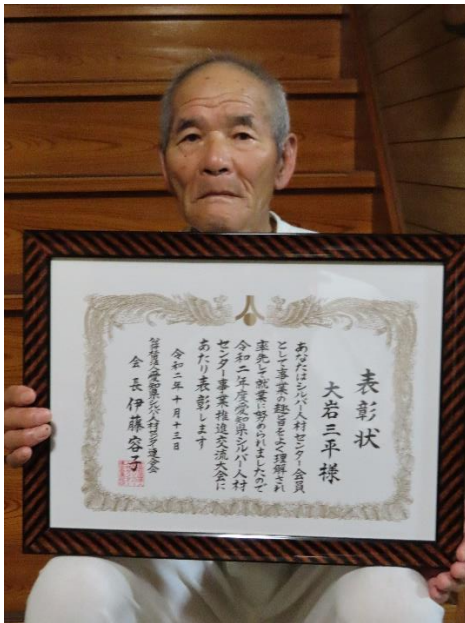 表彰状
大岩三平様
あなたはシルバー人材センター会員
として事業の趣旨をよく理解され
率先して就業に努められましたので
令和二年度愛知県シルバー人材
センター事業推進交流大会に
あたり表彰します
令和二年十月十三日
公益社団法人愛知県シルバー人材センター連合会
会長 伊藤容子